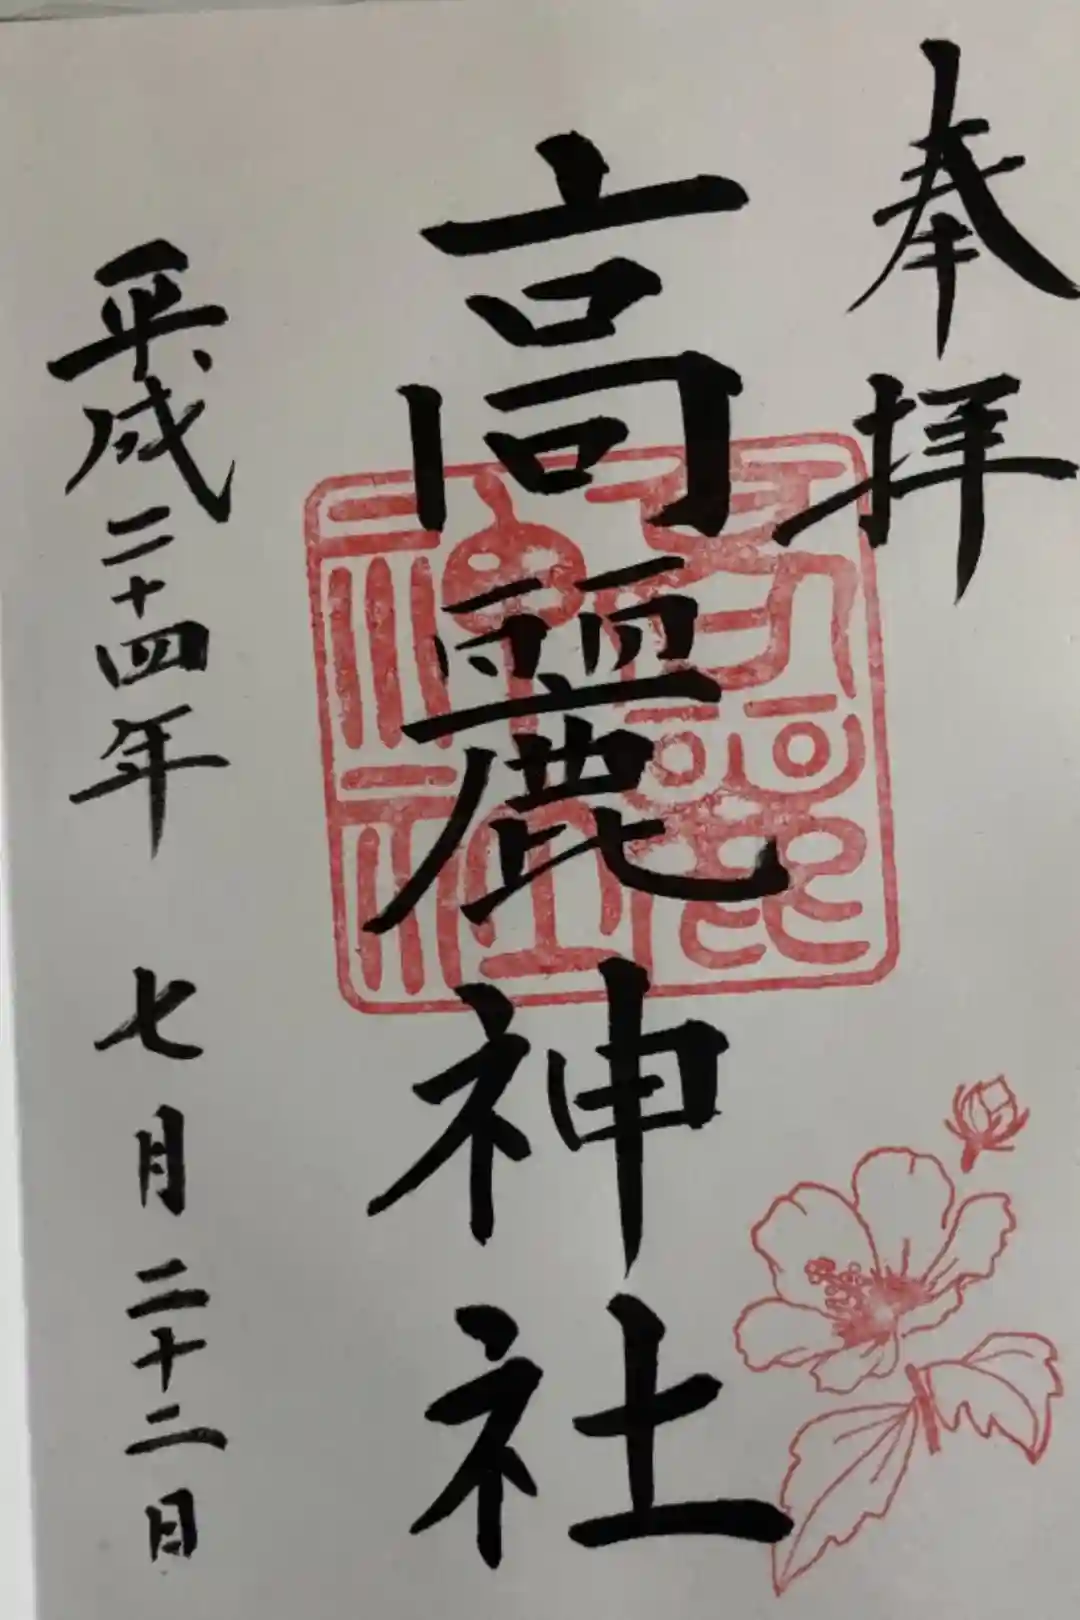 奉拝
高麗神社
高麗神社
平成二十四年 七月二十二日